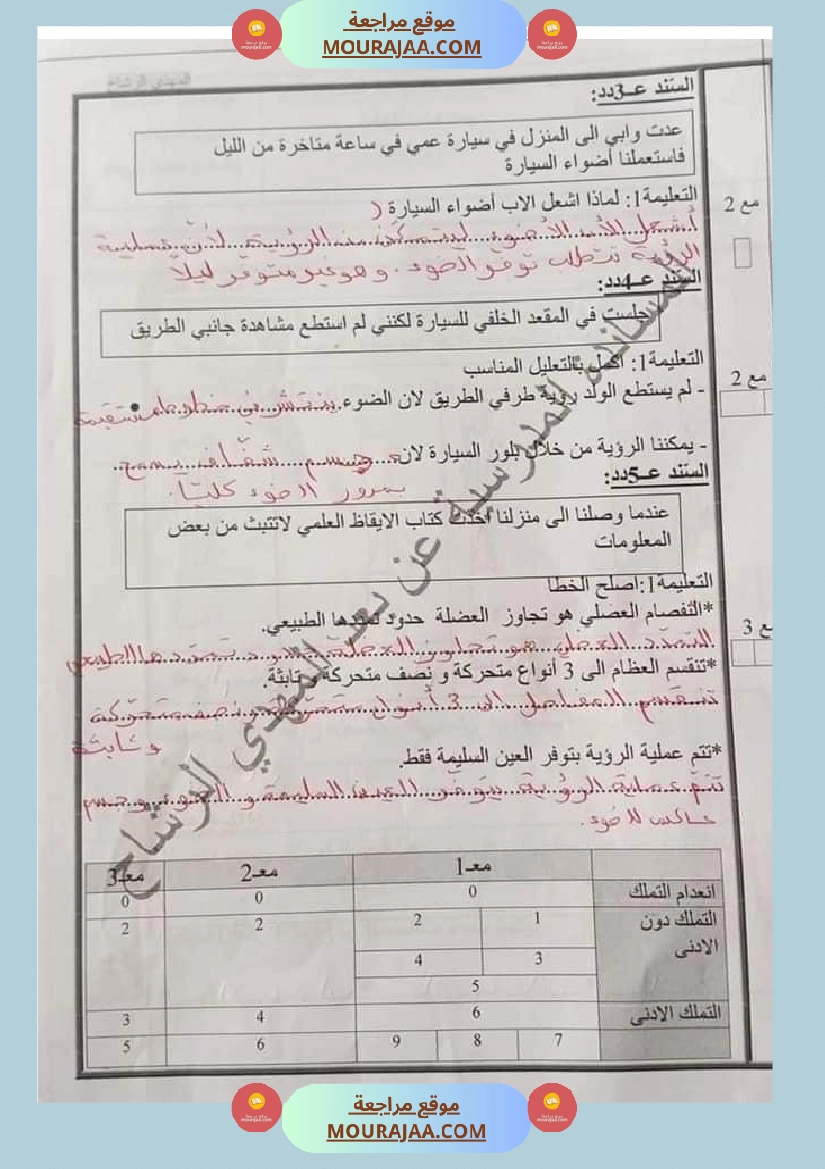 موقع مراجعة
MOURAJAA.COM
السند عـ3دد:
عدت وابي الى المنزل في سيارة عمي في ساعة متاخرة من الليل
فاستعملنا أضواء السيارة
مع 2
التعليمة1: لماذا اشعل الاب أضواء السيارة
أشعل الأب الأضواء ليتمكن من الرؤية لأن عملية
الرؤية تتطلب توفر الضوء. وهو غير متوفر ليلا
السند عـ4دد:
جلست في المقعد الخلفي للسيارة لكنني لم استطع مشاهدة جانبي الطريق
مع 2
التعليمة1: اكمل بالتعليل المناسب
- لم يستطع الولد رؤية طرفي الطريق لان الضوء ينتشر في خطوط مستقيمة
- يمكننا الرؤية من خلال بلور السيارة لان جسم شفاف يسمح
بمرور الضوء كليا.
السند عـ5دد:
عندما وصلنا الى منزلنا أخذت كتاب الايقاظ العلمي لاتثبت من بعض
المعلومات
التعليمة1:اصلح الخطا
مع 3
*التفصام العضلي هو تجاوز العضلة حدود تمددها الطبيعي.
التمدد العضلي هو تجاوز العضلة حدود تمددها الطبيعي
*تنقسم العظام الى 3 أنواع متحركة و نصف متحركة و ثابثة.
تنقسم المفاصل الى 3 أنواع متحركة و نصف متحركة
و ثابتة
*تتم عملية الرؤية بتوفر العين السليمة فقط.
تتم عملية الرؤية بتوفر العين السليمة و الضوء و جسم
عاكس للضوء.
معـ1 معـ2 معـ3
انعدام التملك 0 0 0
التملك دون 1 2 2 2
الادنى 3 4
5
التملك الادنى 6 4 3
7 8 9 6 5
موقع مراجعة
MOURAJAA.COM